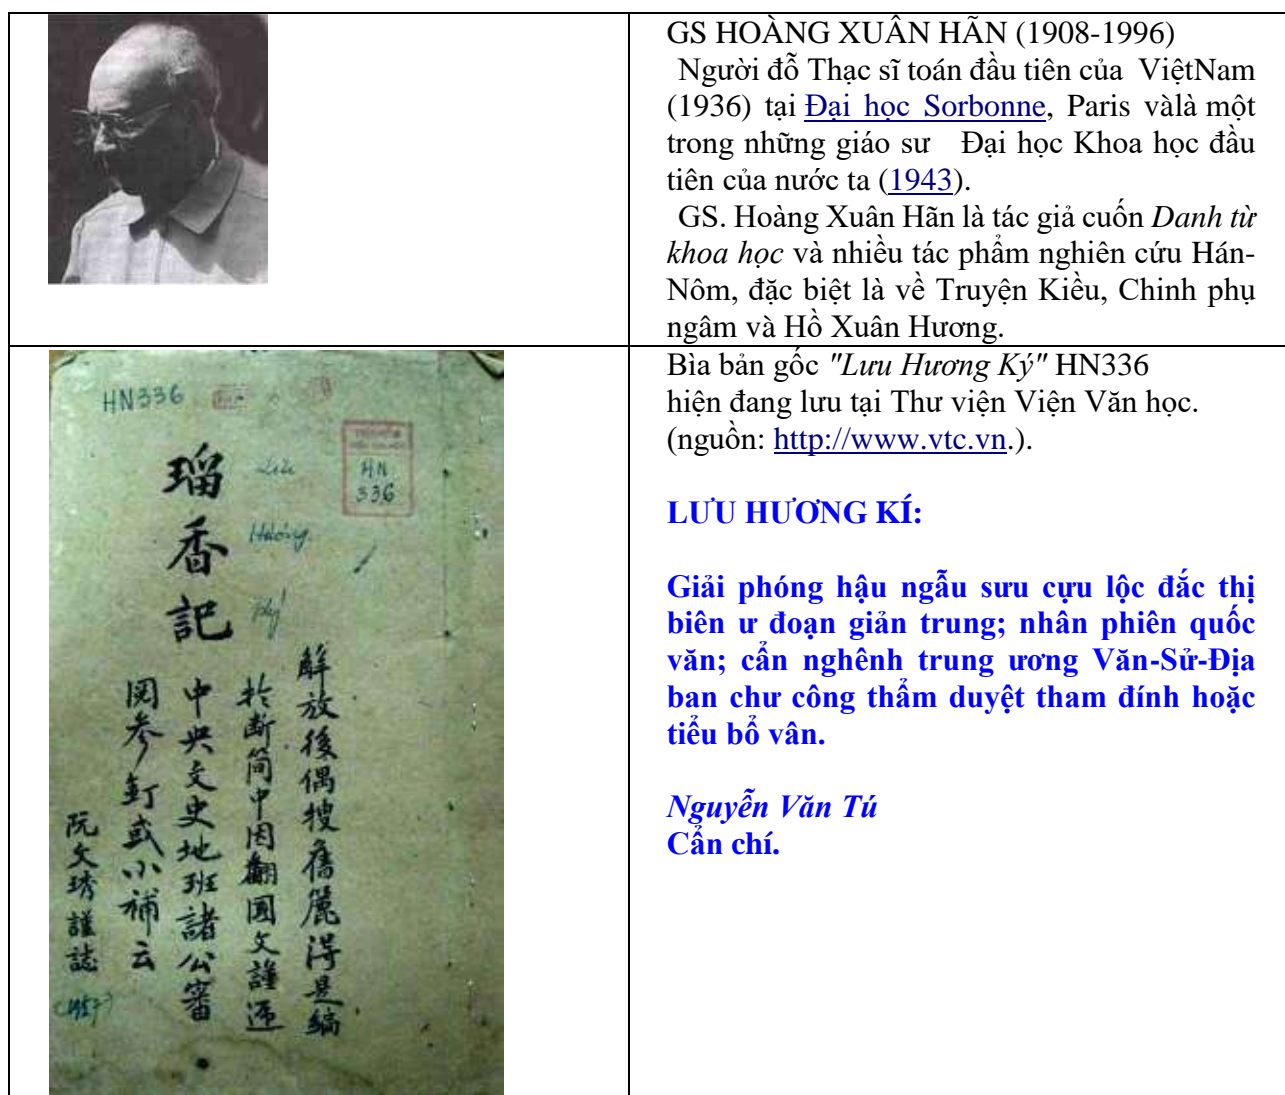 GS HOÀNG XUÂN HÃN (1908-1996)
Người đỗ Thạc sĩ toán đầu tiên của ViệtNam
(1936) tại Đại học Sorbonne, Paris vàlà một
trong những giáo sư Đại học Khoa học đầu
tiên của nước ta (1943).
GS. Hoàng Xuân Hãn là tác giả cuốn Danh từ
khoa học và nhiều tác phẩm nghiên cứu Hán-
Nôm, đặc biệt là về Truyện Kiều, Chinh phụ
ngâm và Hồ Xuân Hương.
HN336
HN
336
瑠香記
Lưu
Hương
Ký
解放後偶搜舊簏得是編
扵断简中因翻国文謹
中央文史地班諸公審
閲参訂或小補云
阮文琇謹誌
(1957)
Bìa bản gốc "Lưu Hương Ký" HN336
hiện đang lưu tại Thư viện Viện Văn học.
(nguồn: http://www.vtc.vn.).
LƯU HƯƠNG KÍ:
Giải phóng hậu ngẫu sưu cựu lộc đắc thị
biên ư đoạn giản trung; nhân phiên quốc
văn; cẩn nghênh trung ương Văn-Sử-Địa
ban chư công thẩm duyệt tham đính hoặc
tiểu bổ vân.
Nguyễn Văn Tú
Cẩn chí.